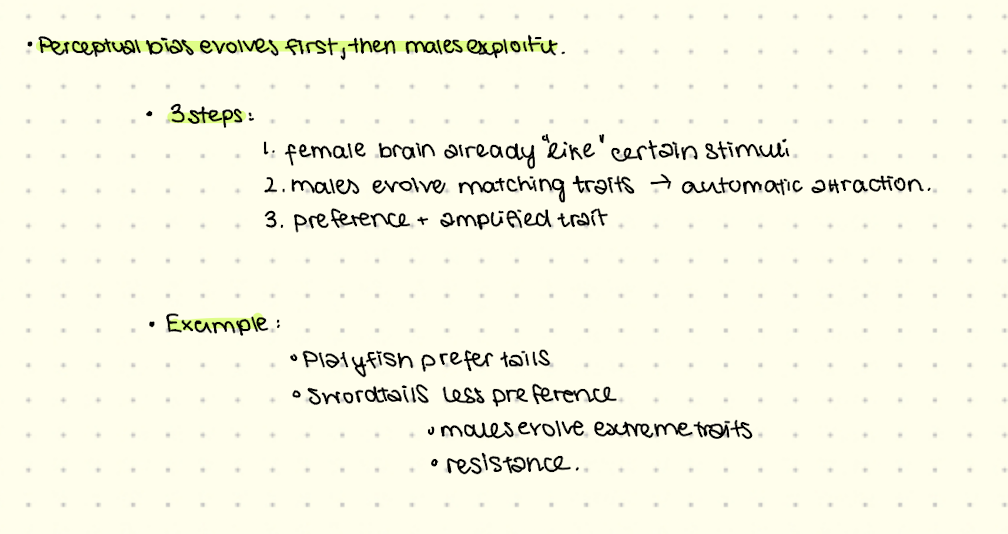 • Perceptual bias evolves first, then males exploit it.
• 3 steps:
1. female brain already "like" certain stimuli
2. males evolve matching traits → automatic attraction.
3. preference + amplified trait
• Example:
• Platyfish prefer tails
• Swordtails less preference
• males evolve extreme traits
• resistance.